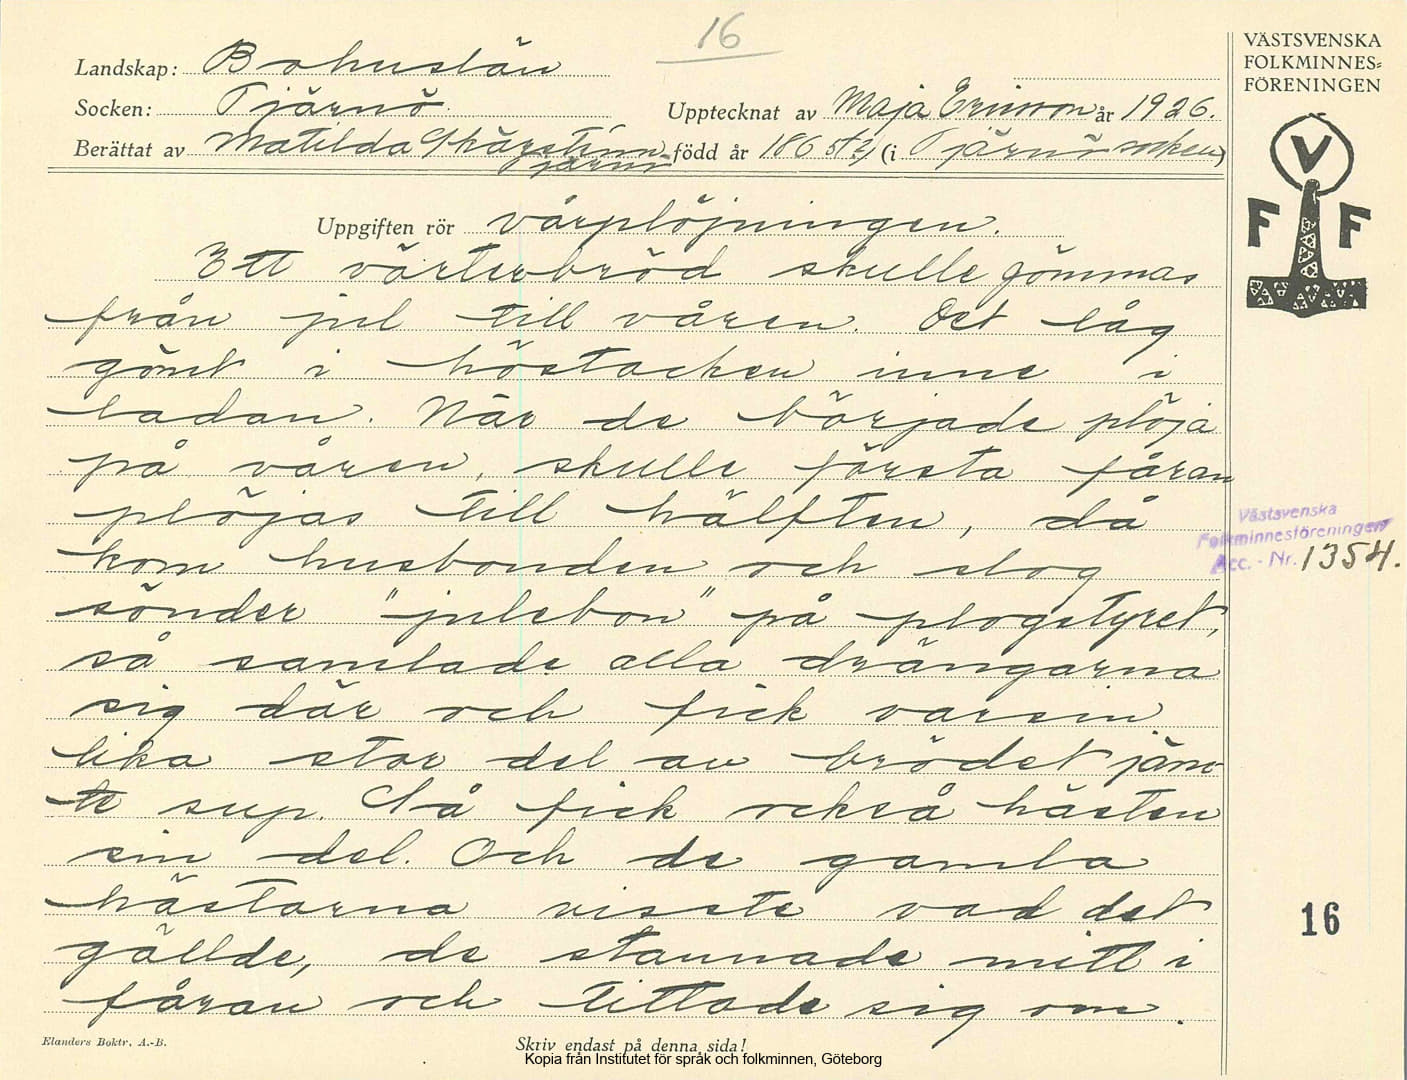 16
Landskap: Bohuslän
Socken: Tjärnö
Upptecknat av Maja Ericson år 1926.
Berättat av Matilda
Tjärnö
född år 1865 (i Tjärnö socken)
VÄSTSVENSKA
FOLKMINNES=
FÖRENINGEN
V
F F
Uppgiften rör vårplöjningen.
Ett vörtebröd skulle gömmas
från jul till våren. Det låg
gömt i höstacken inne i
ladan. När de började plöja
på våren, skulle första fåran
plöjas till hälften, då
kom husbonden och slog
sönder "julebon" på plogstyret,
så samlade alla drängarna
sig där och fick varsin
lika stor del av brödet jäm-
te sup. Så fick också hästen
sin del. Och de gamla
hästarna visste vad det
gällde, de stannade mitt i
fåran och tittade sig om.
Västsvenska
Folkminnesföreningen
Acc. - Nr. 1354.
16
Elanders Boktr. A.-B.
Skriv endast på denna sida!
Kopia från Institutet för språk och folkminnen, Göteborg